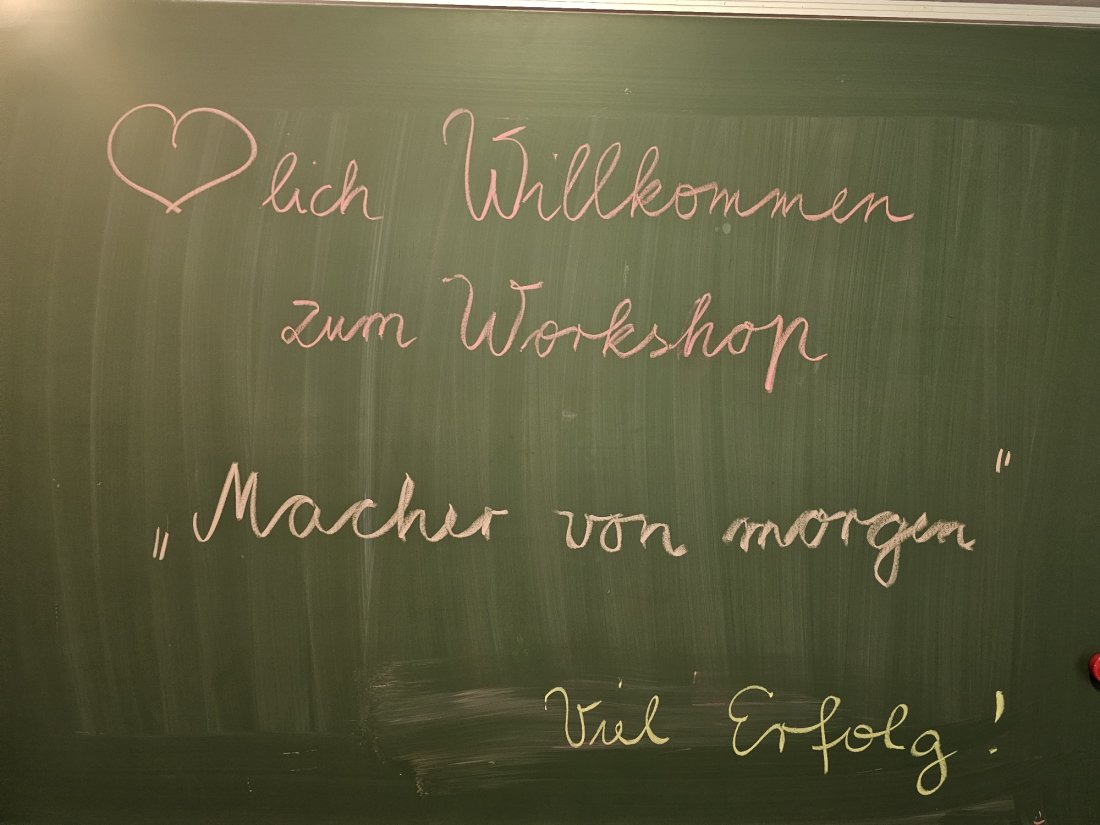 ♡lich Willkommen
zum Workshop
„Macher von morgen"
Viel Erfolg!